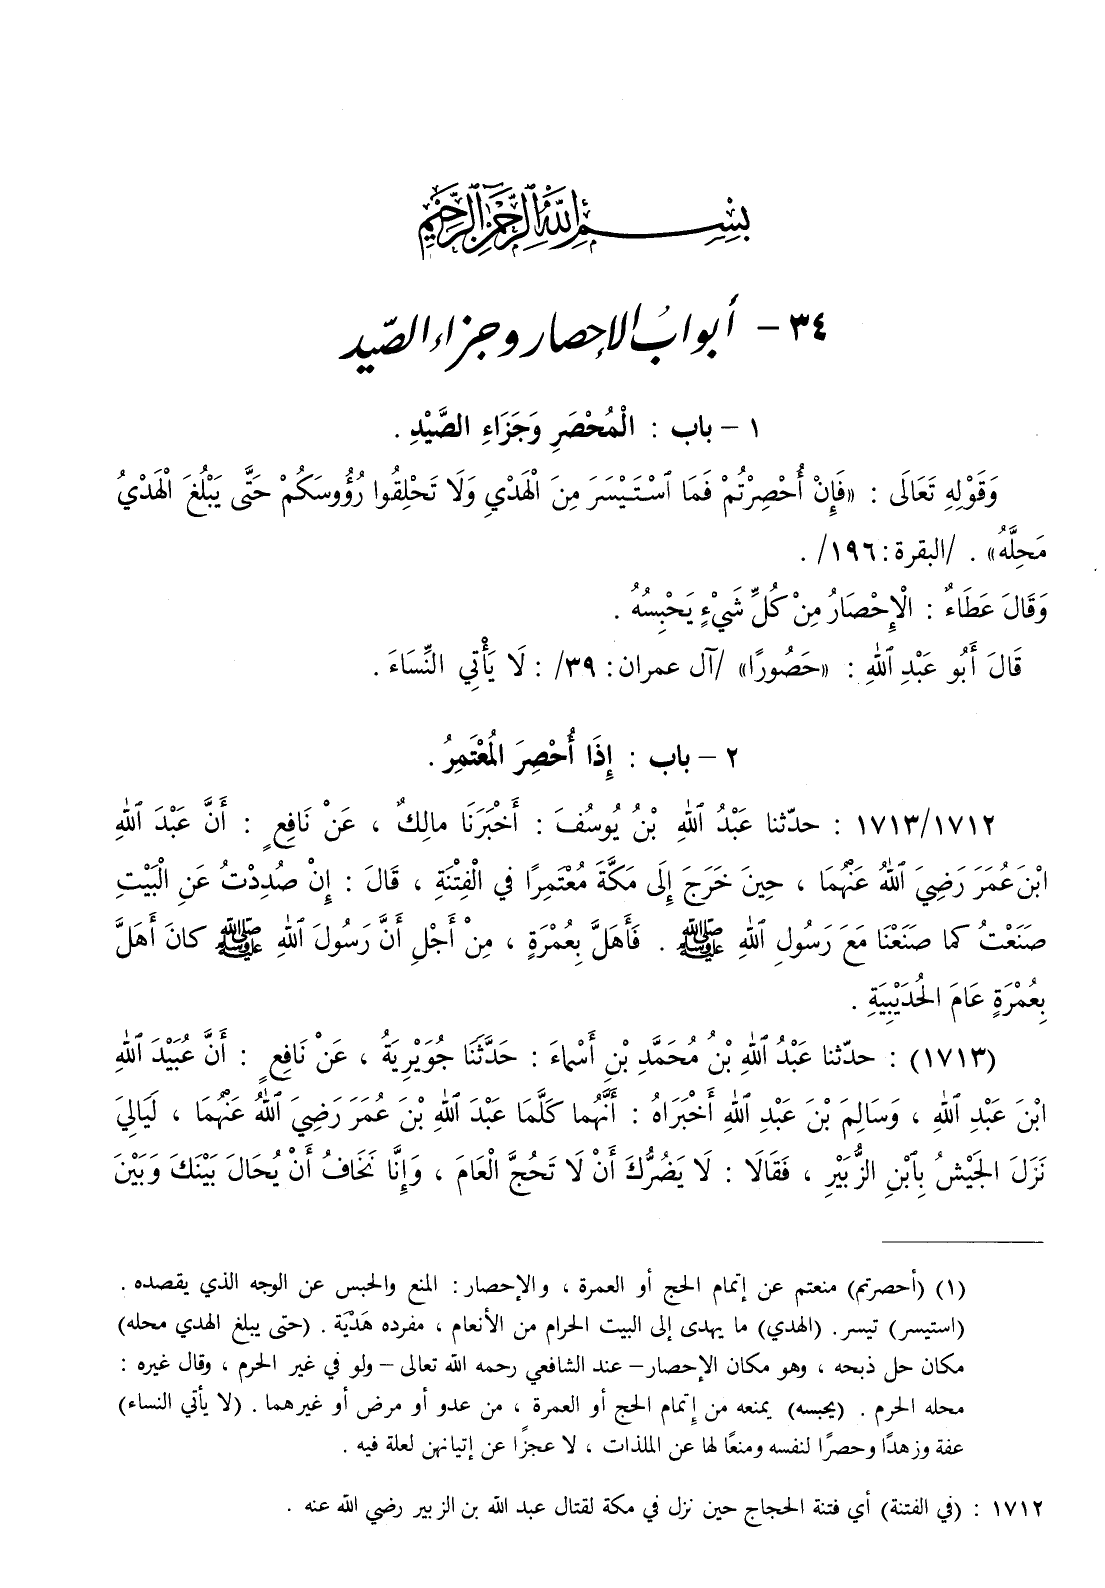 بِسْمِ اللَّهِ الرَّحْمَٰنِ الرَّحِيمِ
٣٤ - أبوابُ الإحصار وجزاء الصّيد
١ - باب : الْمُحْصَرِ وَجَزَاءِ الصَّيْدِ .
وَقَوْلِهِ تَعَالَى : «فَإِنْ أُحْصِرْتُمْ فَمَا ٱسْتَيْسَرَ مِنَ الْهَدْيِ وَلَا تَحْلِقُوا رُؤُوسَكُمْ حَتَّى يَبْلُغَ الْهَدْيُ
مَحِلَّهُ» . /البقرة : ١٩٦/ .
وَقَالَ عَطَاءٌ : الْإِحْصَارُ مِنْ كُلِّ شَيْءٍ يَحْبِسُهُ .
قَالَ أَبُو عَبْدِ ٱللهِ : «حَصُورًا» /آل عمران : ٣٩/ : لَا يَأْتِي النِّسَاءَ .
٢ - باب : إِذَا أُحْصِرَ الْمُعْتَمِرُ .
١٧١٣/١٧١٢ : حدّثنا عَبْدُ ٱللهِ بْنُ يُوسُفَ : أَخْبَرَنَا مالِكٌ ، عَنْ نَافِعٍ : أَنَّ عَبْدَ ٱللهِ
ابْنَ عُمَرَ رَضِيَ ٱللهُ عَنْهُمَا ، حِينَ خَرَجَ إِلَى مَكَّةَ مُعْتَمِرًا فِي الْفِتْنَةِ ، قَالَ : إِنْ صُدِدْتُ عَنِ الْبَيْتِ
صَنَعْتُ كما صَنَعْنَا مَعَ رَسُولِ ٱللهِ ﷺ . فَأَهَلَّ بِعُمْرَةٍ ، مِنْ أَجْلِ أَنَّ رَسُولَ ٱللهِ ﷺ كانَ أَهَلَّ
بِعُمْرَةٍ عَامَ الْحُدَيْبِيَةِ .
(١٧١٣) : حدّثنا عَبْدُ ٱللهِ بْنُ مُحَمَّدِ بْنِ أَسْماءَ : حَدَّثَنَا جُوَيْرِيَةُ ، عَنْ نَافِعٍ : أَنَّ عُبَيْدَ ٱللهِ
ابْنَ عَبْدِ ٱللهِ ، وَسَالِمَ بْنَ عَبْدِ ٱللهِ أَخْبَرَاهُ : أَنَّهُما كَلَّمَا عَبْدَ ٱللهِ بْنَ عُمَرَ رَضِيَ ٱللهُ عَنْهُمَا ، لَيَالِيَ
نَزَلَ الجَيْشُ بِٱبْنِ الزُّبَيْرِ ، فَقَالَا : لَا يَضُرُّكَ أَنْ لَا تَحُجَّ الْعَامَ ، وَإِنَّا نَخَافُ أَنْ يُحَالَ بَيْنَكَ وَبَيْنَ
(١) (أحصرتم) منعتم عن إتمام الحج أو العمرة ، والإحصار : المنع والحبس عن الوجه الذي يقصده .
(استيسر) تيسر . (الهدي) ما يهدى إلى البيت الحرام من الأنعام ، مفرده هَدْيَة . (حتى يبلغ الهدي محله)
مكان حل ذبحه ، وهو مكان الإحصار – عند الشافعي رحمه الله تعالى – ولو في غير الحرم ، وقال غيره :
محله الحرم . (يحبسه) يمنعه من إتمام الحج أو العمرة ، من عدو أو مرض أو غيرهما . (لا يأتي النساء)
عفة وزهدًا وحصرًا لنفسه ومنعًا لها عن الملذات ، لا عجزًا عن إتيانهن لعلة فيه .
١٧١٢ : (في الفتنة) أي فتنة الحجاج حين نزل في مكة لقتال عبد الله بن الزبير رضي الله عنه .